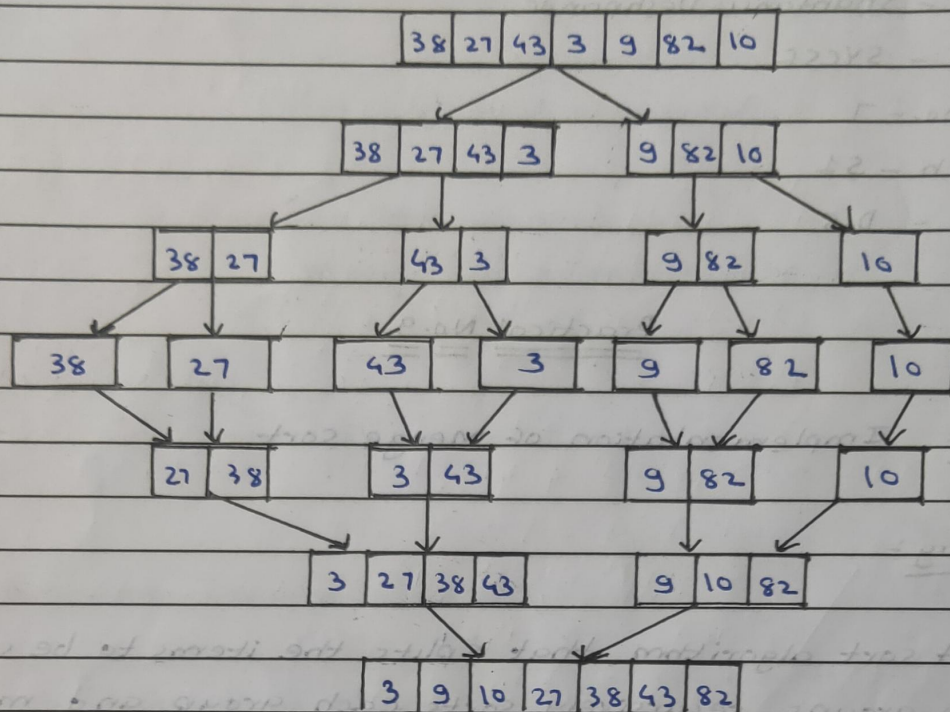 38 27 43 3 9 82 10
38 27 43 3 9 82 10
38 27 43 3 9 82 10
38 27 43 3 9 82 10
27 38 3 43 9 82 10
3 27 38 43 9 10 82
3 9 10 27 38 43 82